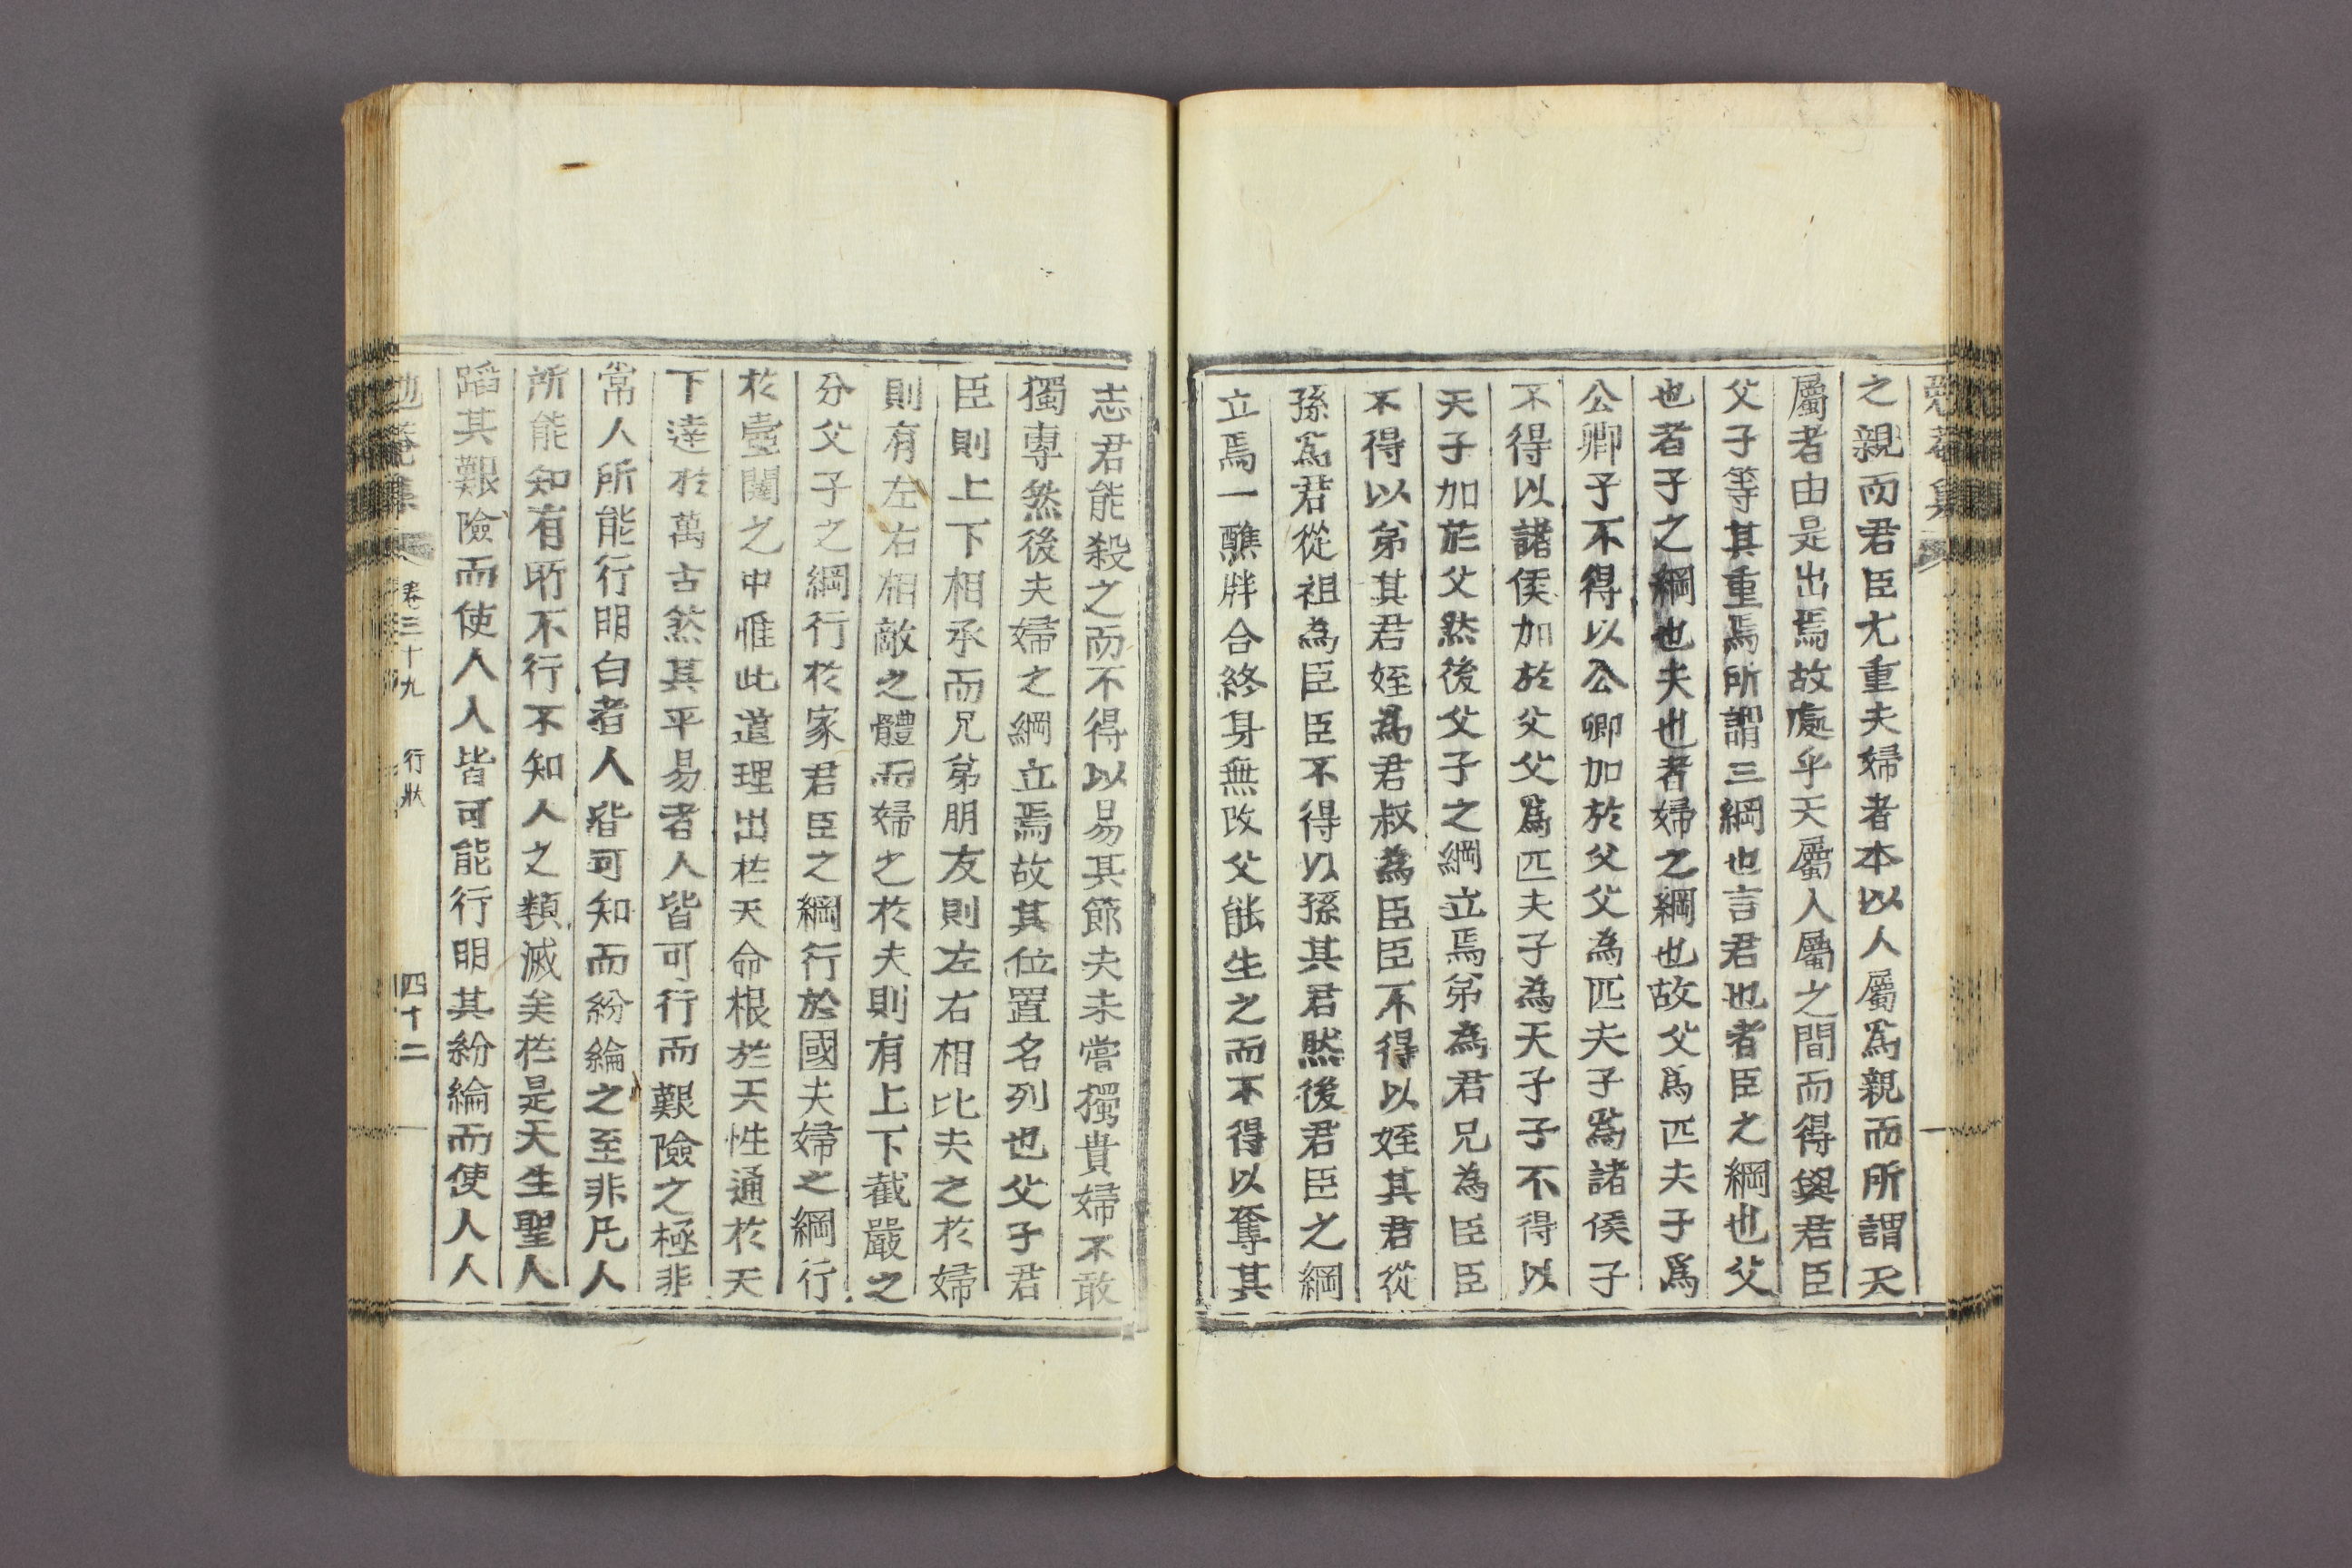 之親而君臣尤重夫婦者本以人屬爲親而所謂天
屬者由是出焉故處乎天屬人屬之間而得與君臣
父子等其重焉所謂三綱也言君也者臣之綱也父
也者子之綱也夫也者婦之綱也故父爲匹夫子爲
公卿子不得以公卿加於父父為匹夫子爲諸侯子
不得以諸侯加於父父爲匹夫子為天子子不得以
天子加於父然後父子之綱立焉弟為君兄為臣臣
不得以弟其君姪爲君叔為臣臣不得以姪其君從
孫爲君從祖為臣臣不得以孫其君然後君臣之綱
立焉一醮牉合終身無改父能生之而不得以奪其
志君能殺之而不得以易其節夫未嘗獨貴婦不敢
獨專然後夫婦之綱立焉故其位置名列也父子君
臣則上下相承而兄弟朋友則左右相比夫之於婦
則有左右相敵之體而婦之於夫則有上下截嚴之
分父子之綱行於家君臣之綱行於國夫婦之綱行
於壼閫之中惟此道理出於天命根於天性通於天
下達於萬古然其平易者人皆可行而艱險之極非
常人所能行明白者人皆可知而紛綸之至非凡人
所能知有所不行不知人之類滅矣於是天生聖人
蹈其艱險而使人人皆可能行明其紛綸而使人人
卷三十九 行狀 四十二